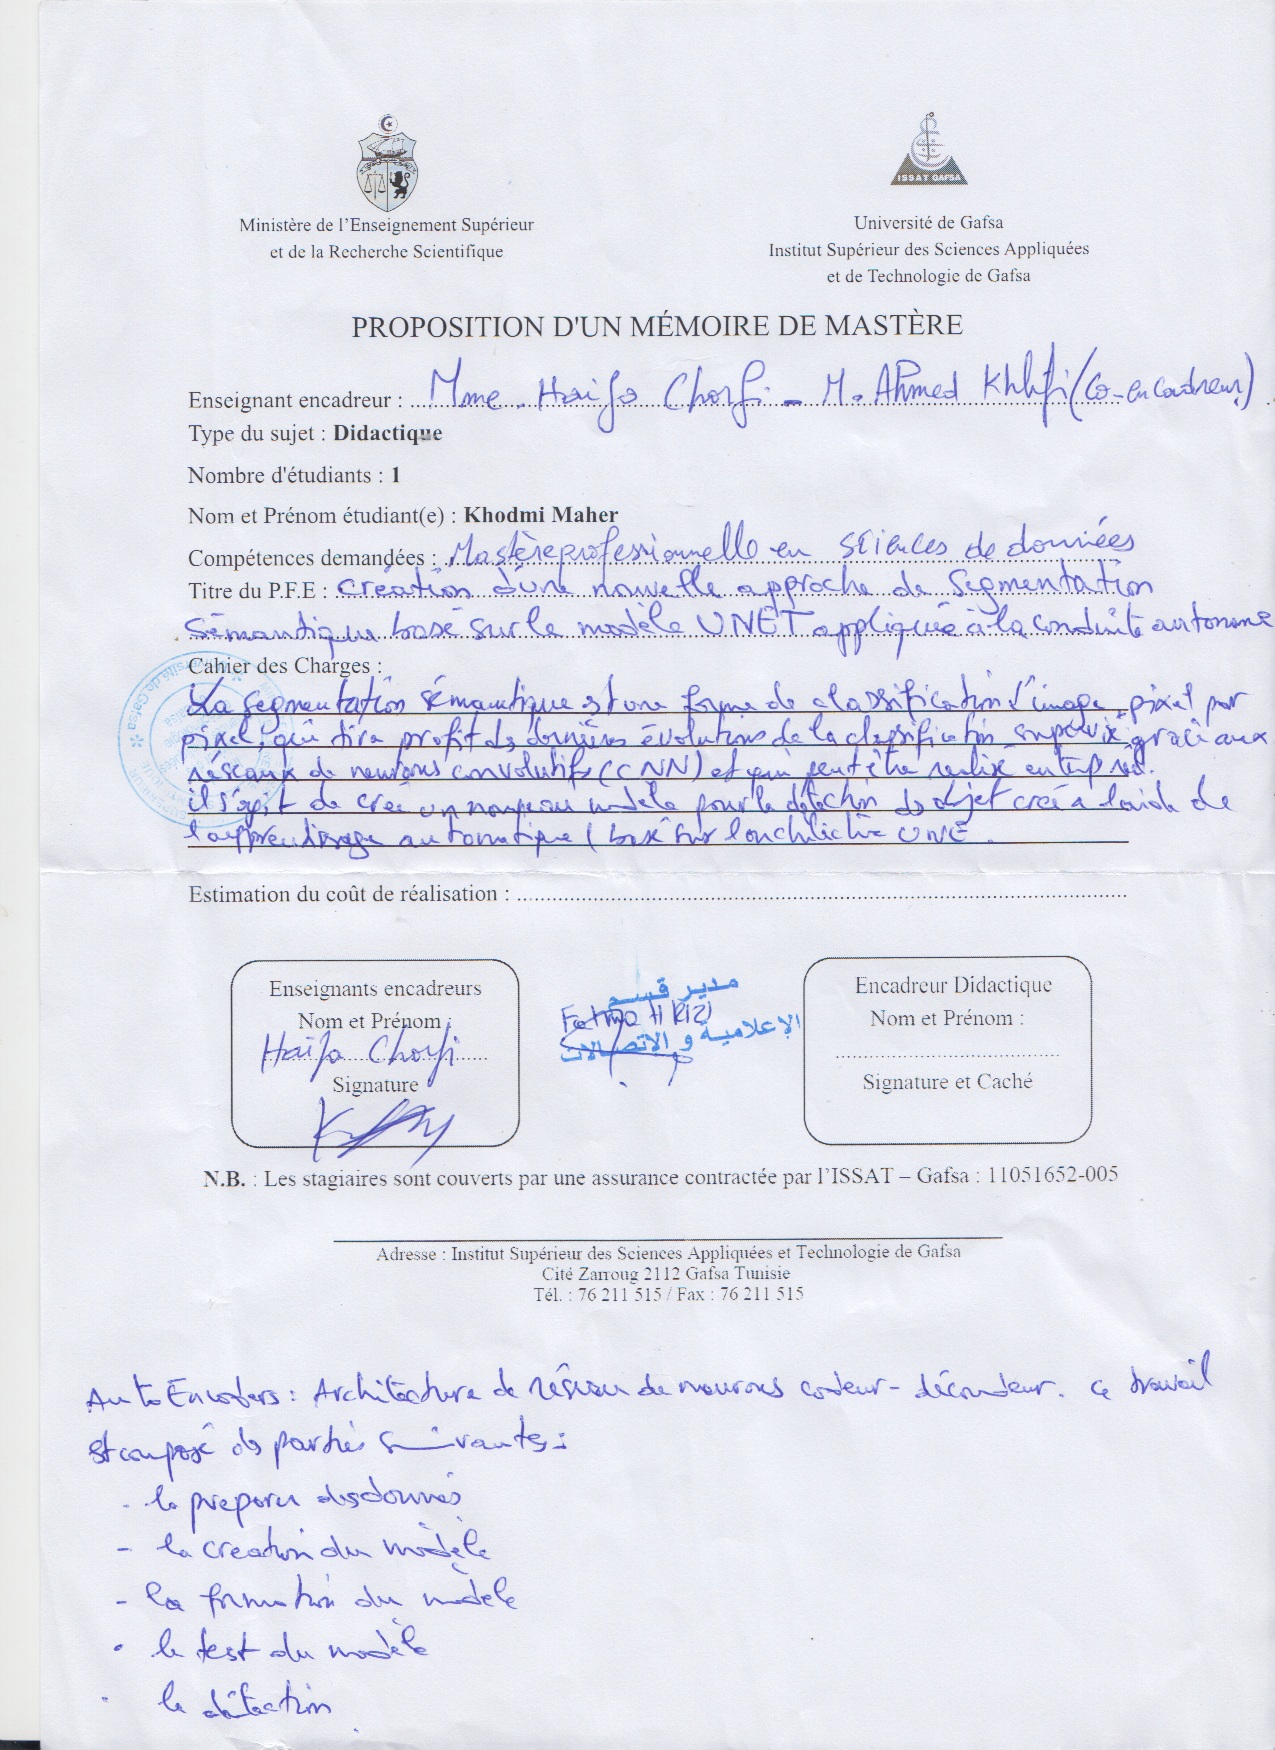 ISSAT GAFSA
Ministère de l'Enseignement Supérieur
et de la Recherche Scientifique
Université de Gafsa
Institut Supérieur des Sciences Appliquées
et de Technologie de Gafsa
PROPOSITION D'UN MÉMOIRE DE MASTÈRE
Enseignant encadreur : Mme. Haifa Chorfi - M. Ahmed Khlifi (Co-encadreur)
Type du sujet : Didactique
Nombre d'étudiants : 1
Nom et Prénom étudiant(e) : Khodmi Maher
Compétences demandées : Mastère professionnelle en sciences de données
Titre du P.F.E : Création d'une nouvelle approche de Segmentation
Sémantique basé sur le modèle UNET appliquée à la conduite autonome
Cahier des Charges :
La segmentation sémantique est une forme de classification d'image pixel par
pixel, qui tira profit des dernières évolutions de la classification supervix grâce aux
réseaux de neurones convolutifs (CNN) et qui peut être
il s'agit de créé un nouveau modèle pour la détection de objet créé à l'aide de
l'apprentissage automatique ( basé sur l'architecture UNE .
Estimation du coût de réalisation :
Enseignants encadreurs
Nom et Prénom :
Haifa Chorfi
Signature
مدير قسم
Fatma HRIZI
الإعلامية و الاتصالات
Encadreur Didactique
Nom et Prénom :
Signature et Caché
N.B. : Les stagiaires sont couverts par une assurance contractée par l'ISSAT – Gafsa : 11051652-005
Adresse : Institut Supérieur des Sciences Appliquées et Technologie de Gafsa
Cité Zarroug 2112 Gafsa Tunisie
Tél. : 76 211 515 / Fax : 76 211 515
Auto Encoders : Architecture de réseau de neurones codeur - décodeur. ce travail
est composé de parties suivantes :
- la preparer des données
- la creation du modèle
- la formation du modèle
- le test du modèle
- la détection